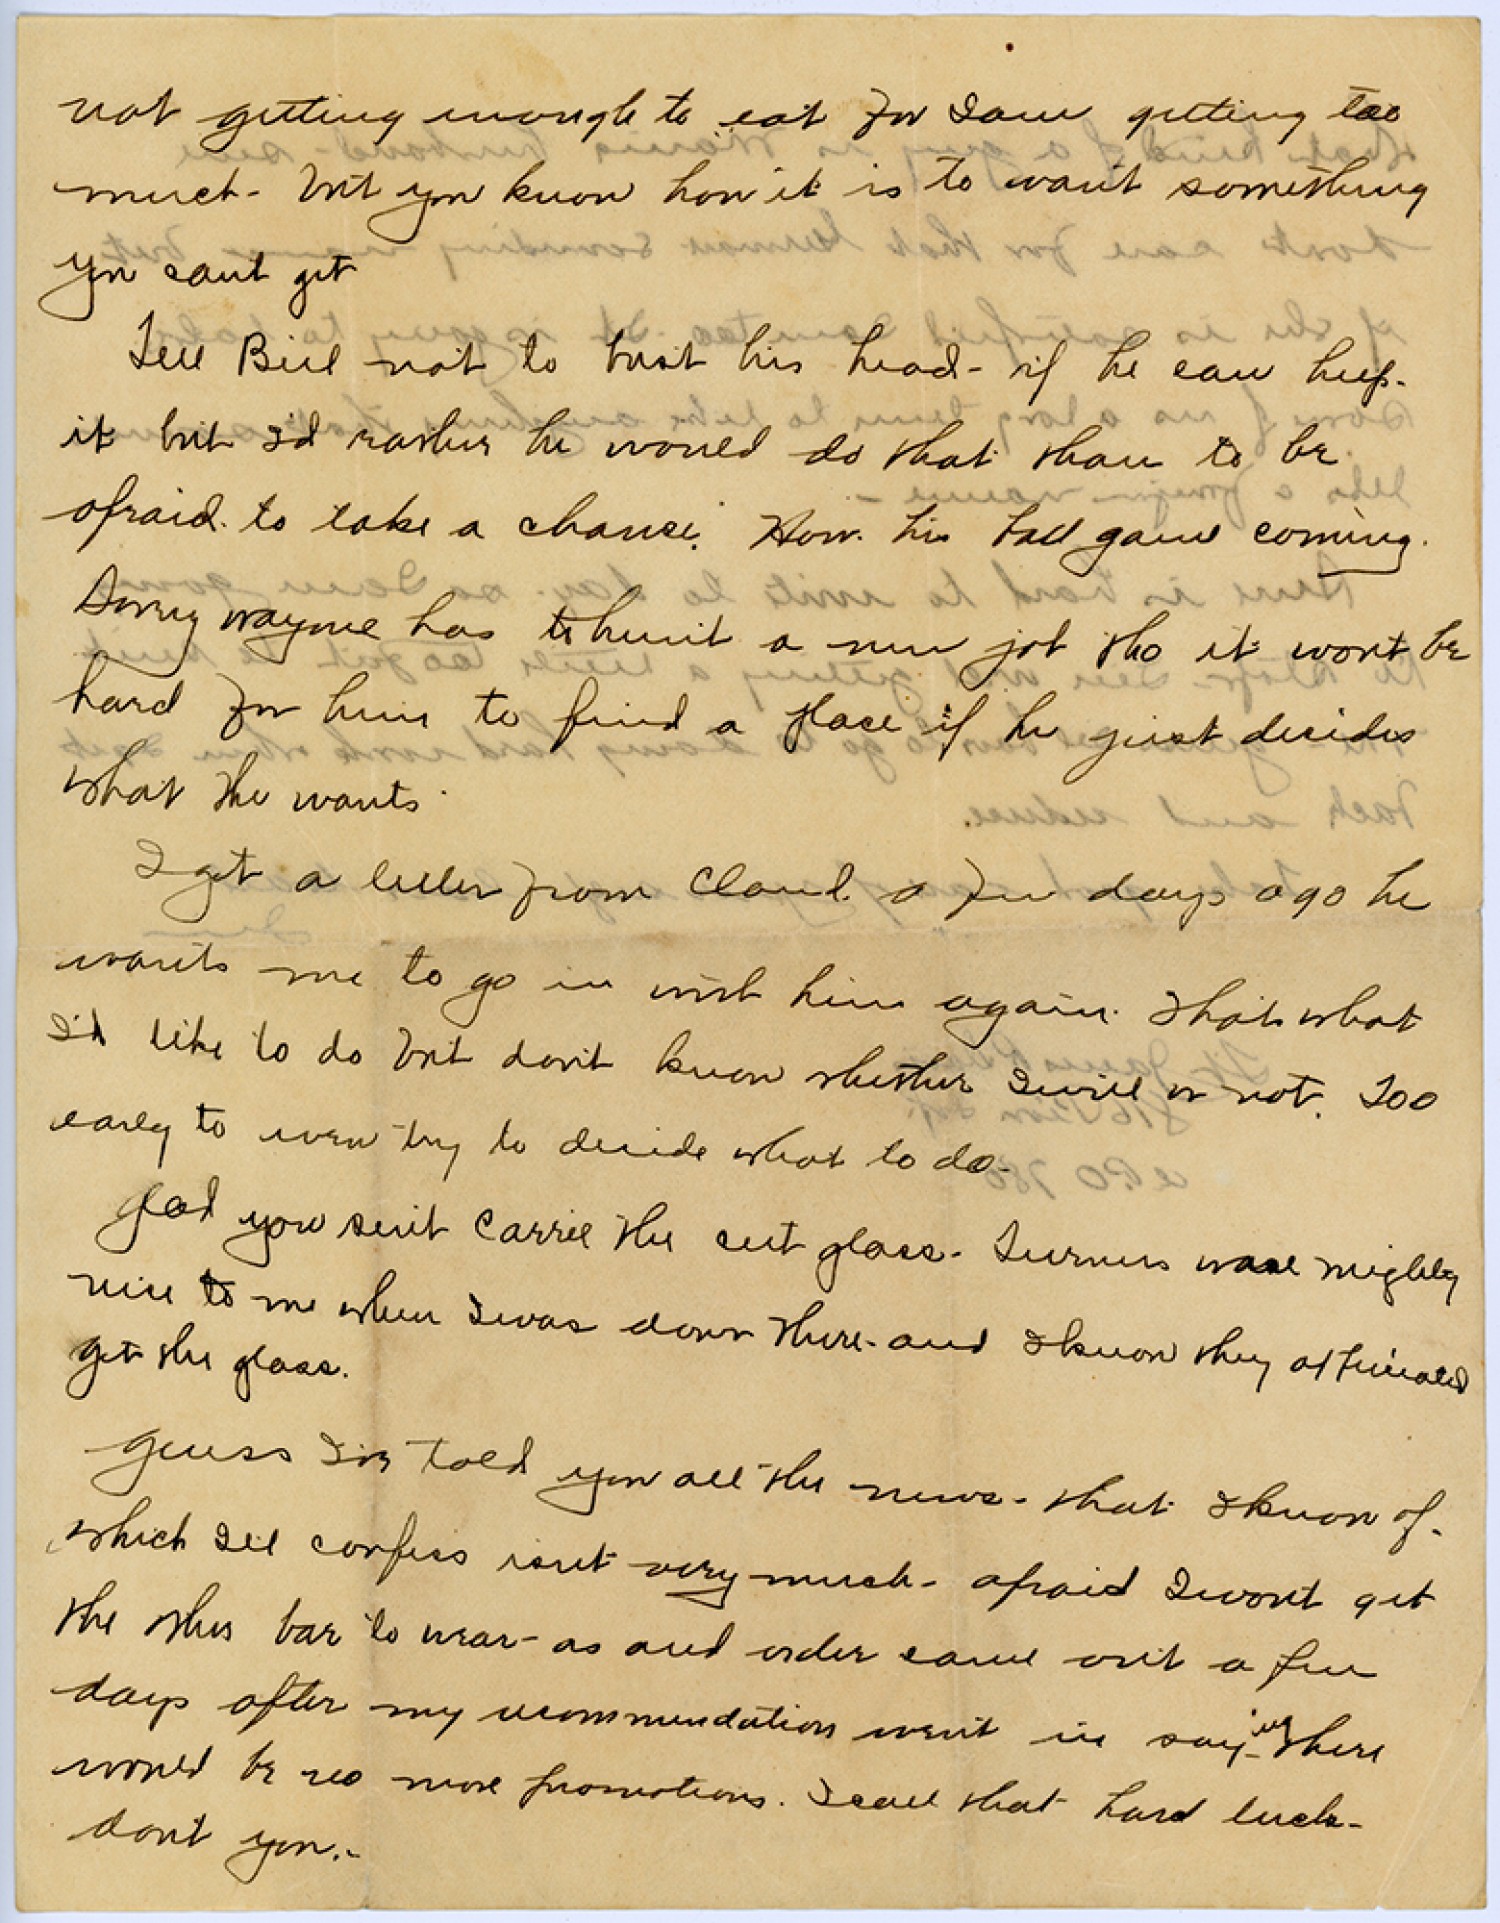 not getting enough to eat for I am getting too
much - but you know how it is to want something
you cant get
Tell Bill not to bust his head - if he can help -
it but I'd rather he would do that than to be
afraid to take a chance. How his ball game coming.
Sorry Wayne has to hunt a new job tho it wont be
hard for him to find a place if he just decides
what he wants.
I got a letter from Claud a few days ago he
wants me to go in with him again. That's what
I'd like to do but don't know whether I will or not. Too
early to even try to decide what to do -
Glad you sent Carrie the cut glass - Turners was mighty
nice to me when I was down there - and I know they
get the glass.
Guess I've told you all the news - that I know of -
which I'll confess isn't very much - afraid I wont get
the other bar to wear - as and order came out a few
days after my recommendation went in saying there
would be no more promotions. I call that hard luck -
don't you. -